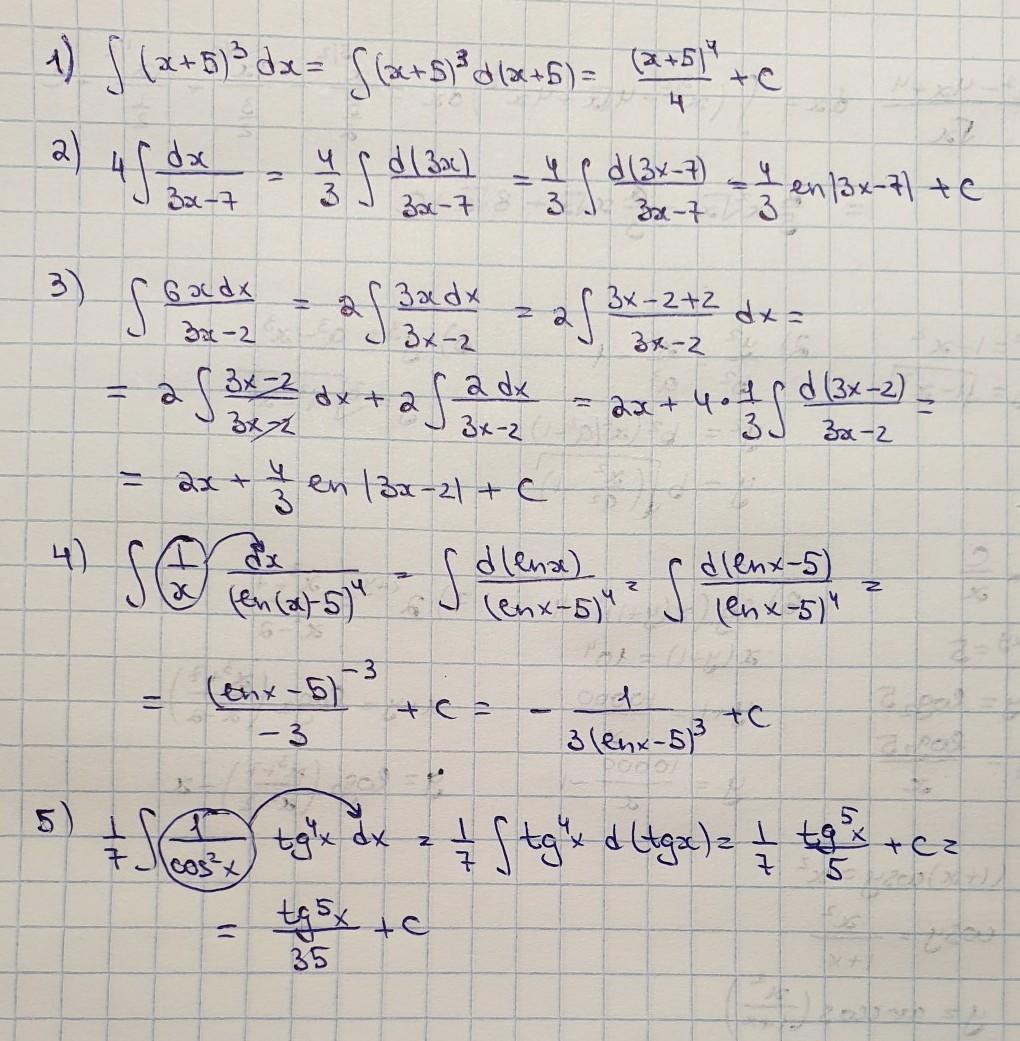 1) ∫ (x+5)³ dx = ∫ (x+5)³ d(x+5) = (x+5)⁴/4 + c
2) 4 ∫ dx/(3x-7) = 4/3 ∫ d(3x)/(3x-7) = 4/3 ∫ d(3x-7)/(3x-7) = 4/3 ln|3x-7| + c
3) ∫ 6x dx/(3x-2) = 2 ∫ 3x dx/(3x-2) = 2 ∫ (3x-2+2)/(3x-2) dx =
= 2 ∫ (3x-2)/(3x-2) dx + 2 ∫ 2 dx/(3x-2) = 2x + 4 · 1/3 ∫ d(3x-2)/(3x-2) =
= 2x + 4/3 ln |3x-2| + c
4) ∫ 1/x dx/(ln(x)-5)⁴ = ∫ d(lnx)/(lnx-5)⁴ = ∫ d(lnx-5)/(lnx-5)⁴ =
= (lnx-5)⁻³/-3 + c = - 1/3(lnx-5)³ + c
5) 1/7 ∫ 1/cos²x tg⁴x dx = 1/7 ∫ tg⁴x d(tgx) = 1/7 tg⁵x/5 + c =
= tg⁵x/35 + c